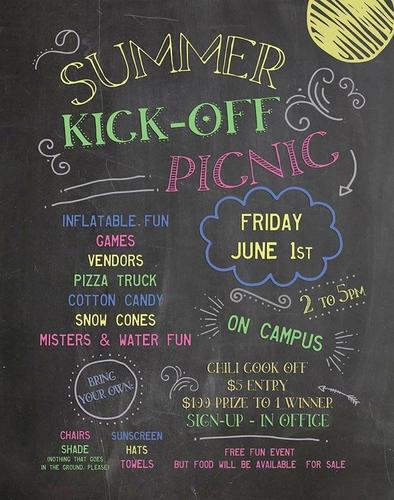 SUMMER
KICK-OFF
PICNIC
FRIDAY
JUNE 1ST
2 TO 5PM
ON CAMPUS
INFLATABLE FUN
GAMES
VENDORS
PIZZA TRUCK
COTTON CANDY
SNOW CONES
MISTERS & WATER FUN
CHILI COOK OFF
$5 ENTRY
$199 PRIZE TO 1 WINNER
SIGN-UP - IN OFFICE
BRING
YOUR OWN:
CHAIRS
SHADE
(NOTHING THAT GOES
IN THE GROUND, PLEASE)
SUNSCREEN
HATS
TOWELS
FREE FUN EVENT
BUT FOOD WILL BE AVAILABLE FOR SALE